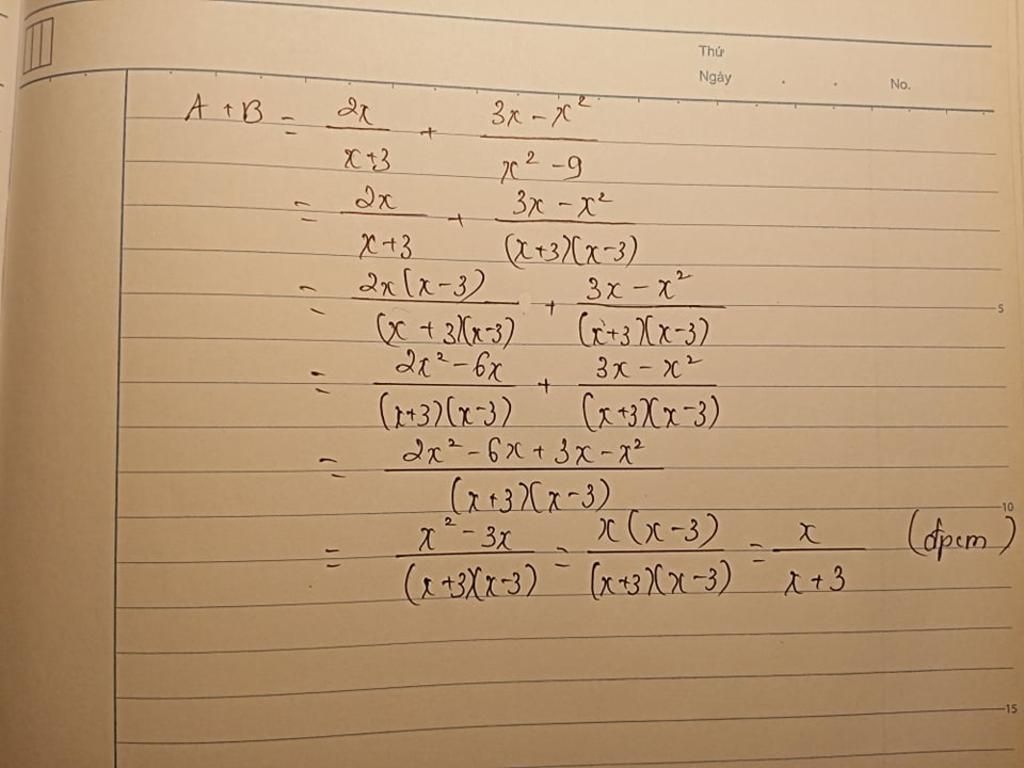 Thứ
Ngày . . No.
A + B = 2x/(x+3) + (3x - x²)/(x² - 9)
= 2x/(x+3) + (3x - x²)/((x+3)(x-3))
= 2x(x-3)/((x+3)(x-3)) + (3x - x²)/((x+3)(x-3))
5
= (2x² - 6x)/((x+3)(x-3)) + (3x - x²)/((x+3)(x-3))
= (2x² - 6x + 3x - x²)/((x+3)(x-3))
10
= (x² - 3x)/((x+3)(x-3)) = x(x-3)/((x+3)(x-3)) = x/(x+3) (đpcm)
15